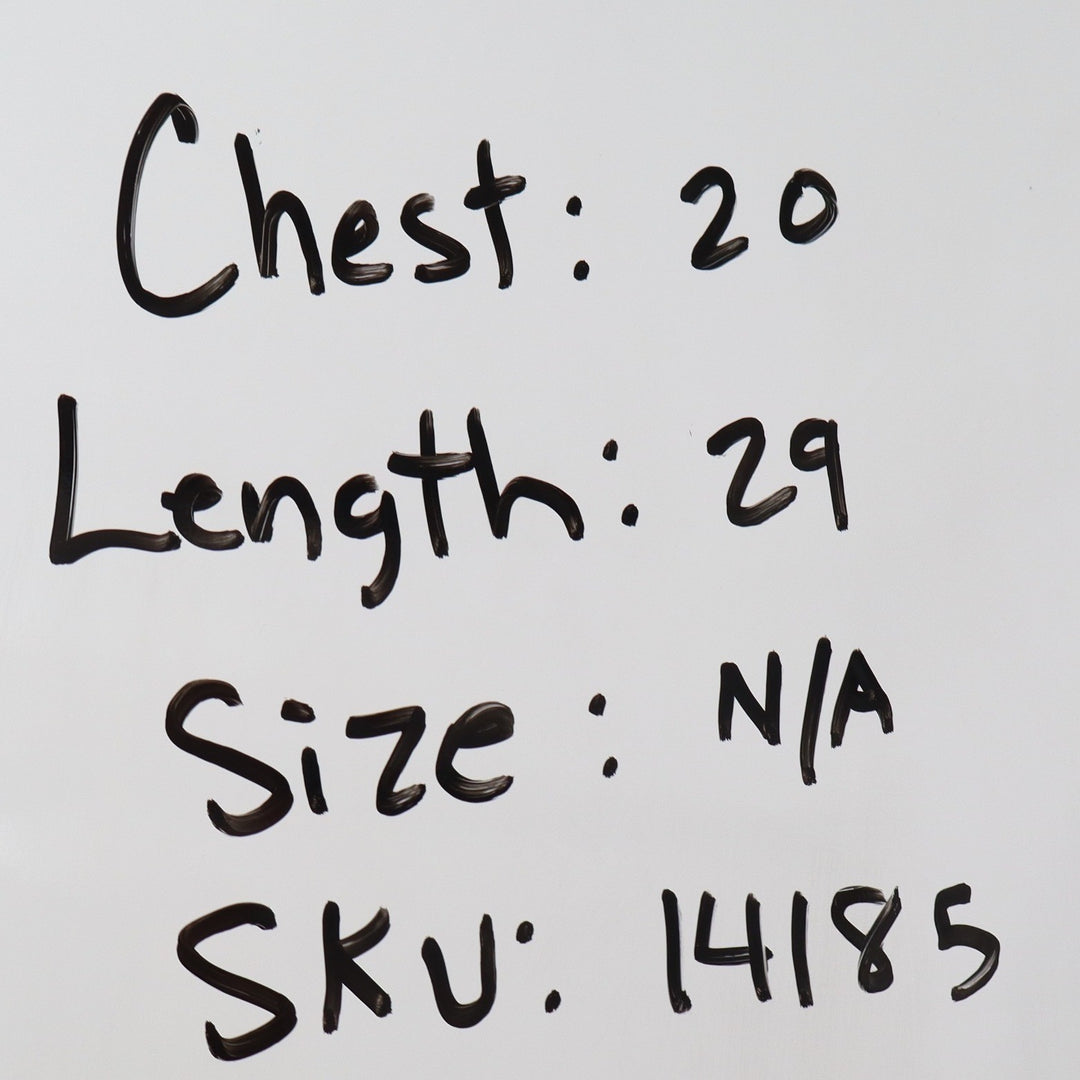 Chest: 20
Length: 29
Size: N/A
SKU: 14185